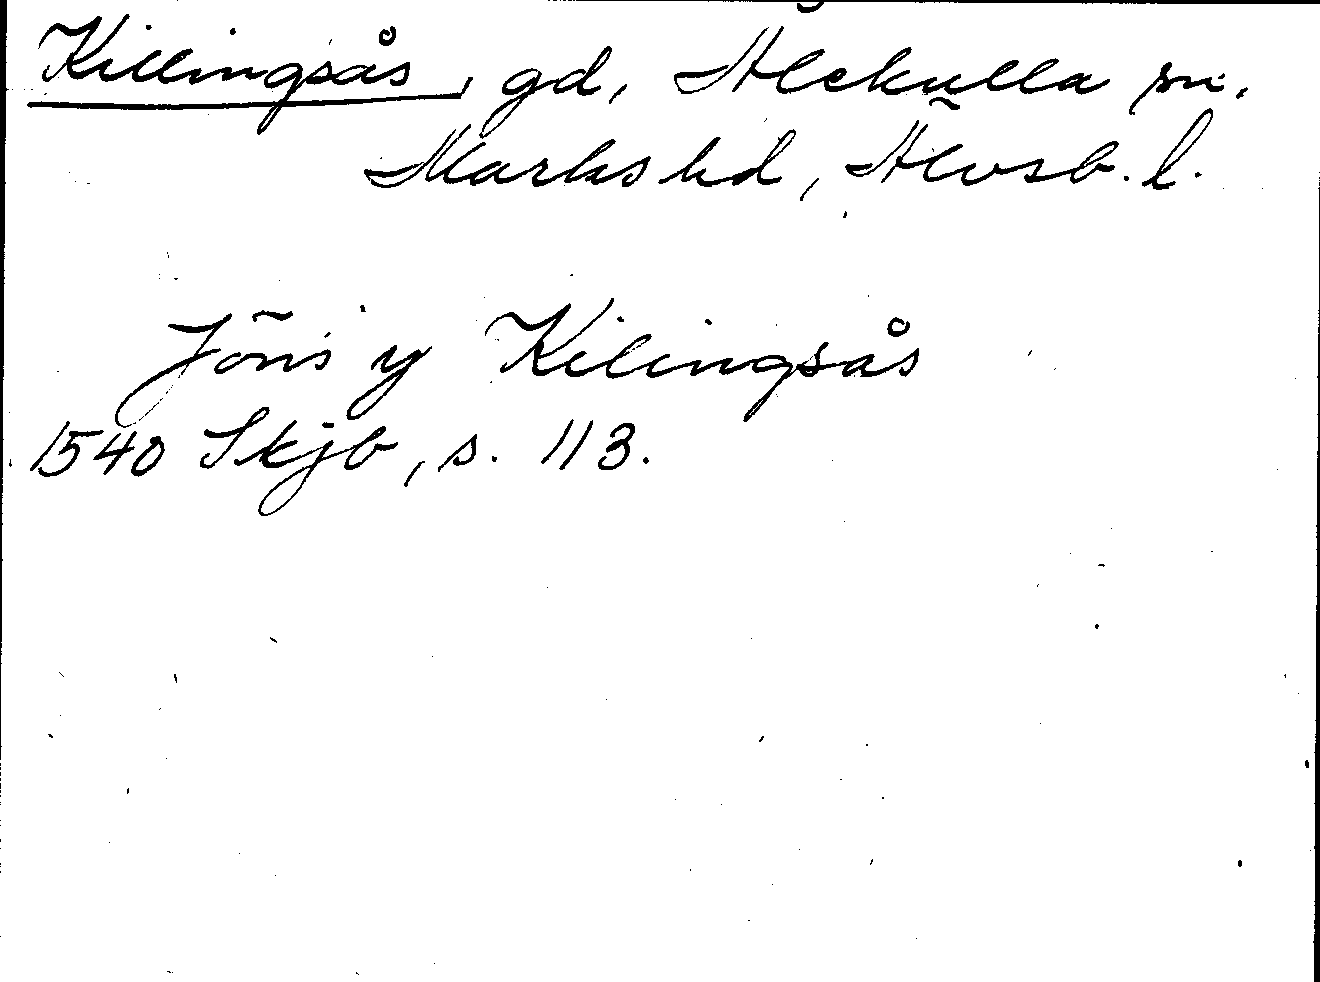 Killingsås, gd, Ålekulla sn,
Marks hd, Älvsb. l.
Jöns y Kilingsås
1540 Skjb, s. 113.